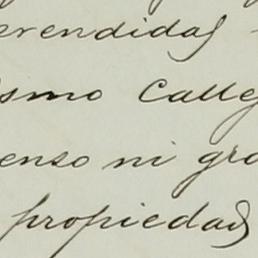 erendidas
smo Calle
enso ni gra
propiedad